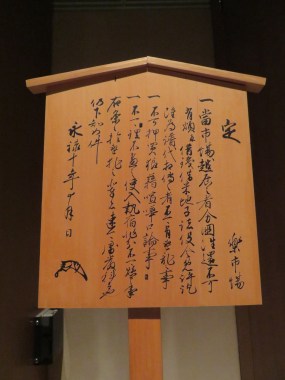 定
樂市場
一當市場越居之者分國往還不可
有煩并借銭借米地子諸役令免許訖
雖為譜代相傳之者不可有違乱事
一不可押買狼藉喧嘩口論事
一不可理不盡之使入執宿非分不可懸申事
右條々於違犯之輩者速可處嚴科者也
仍下知如件
永禄十年十月日